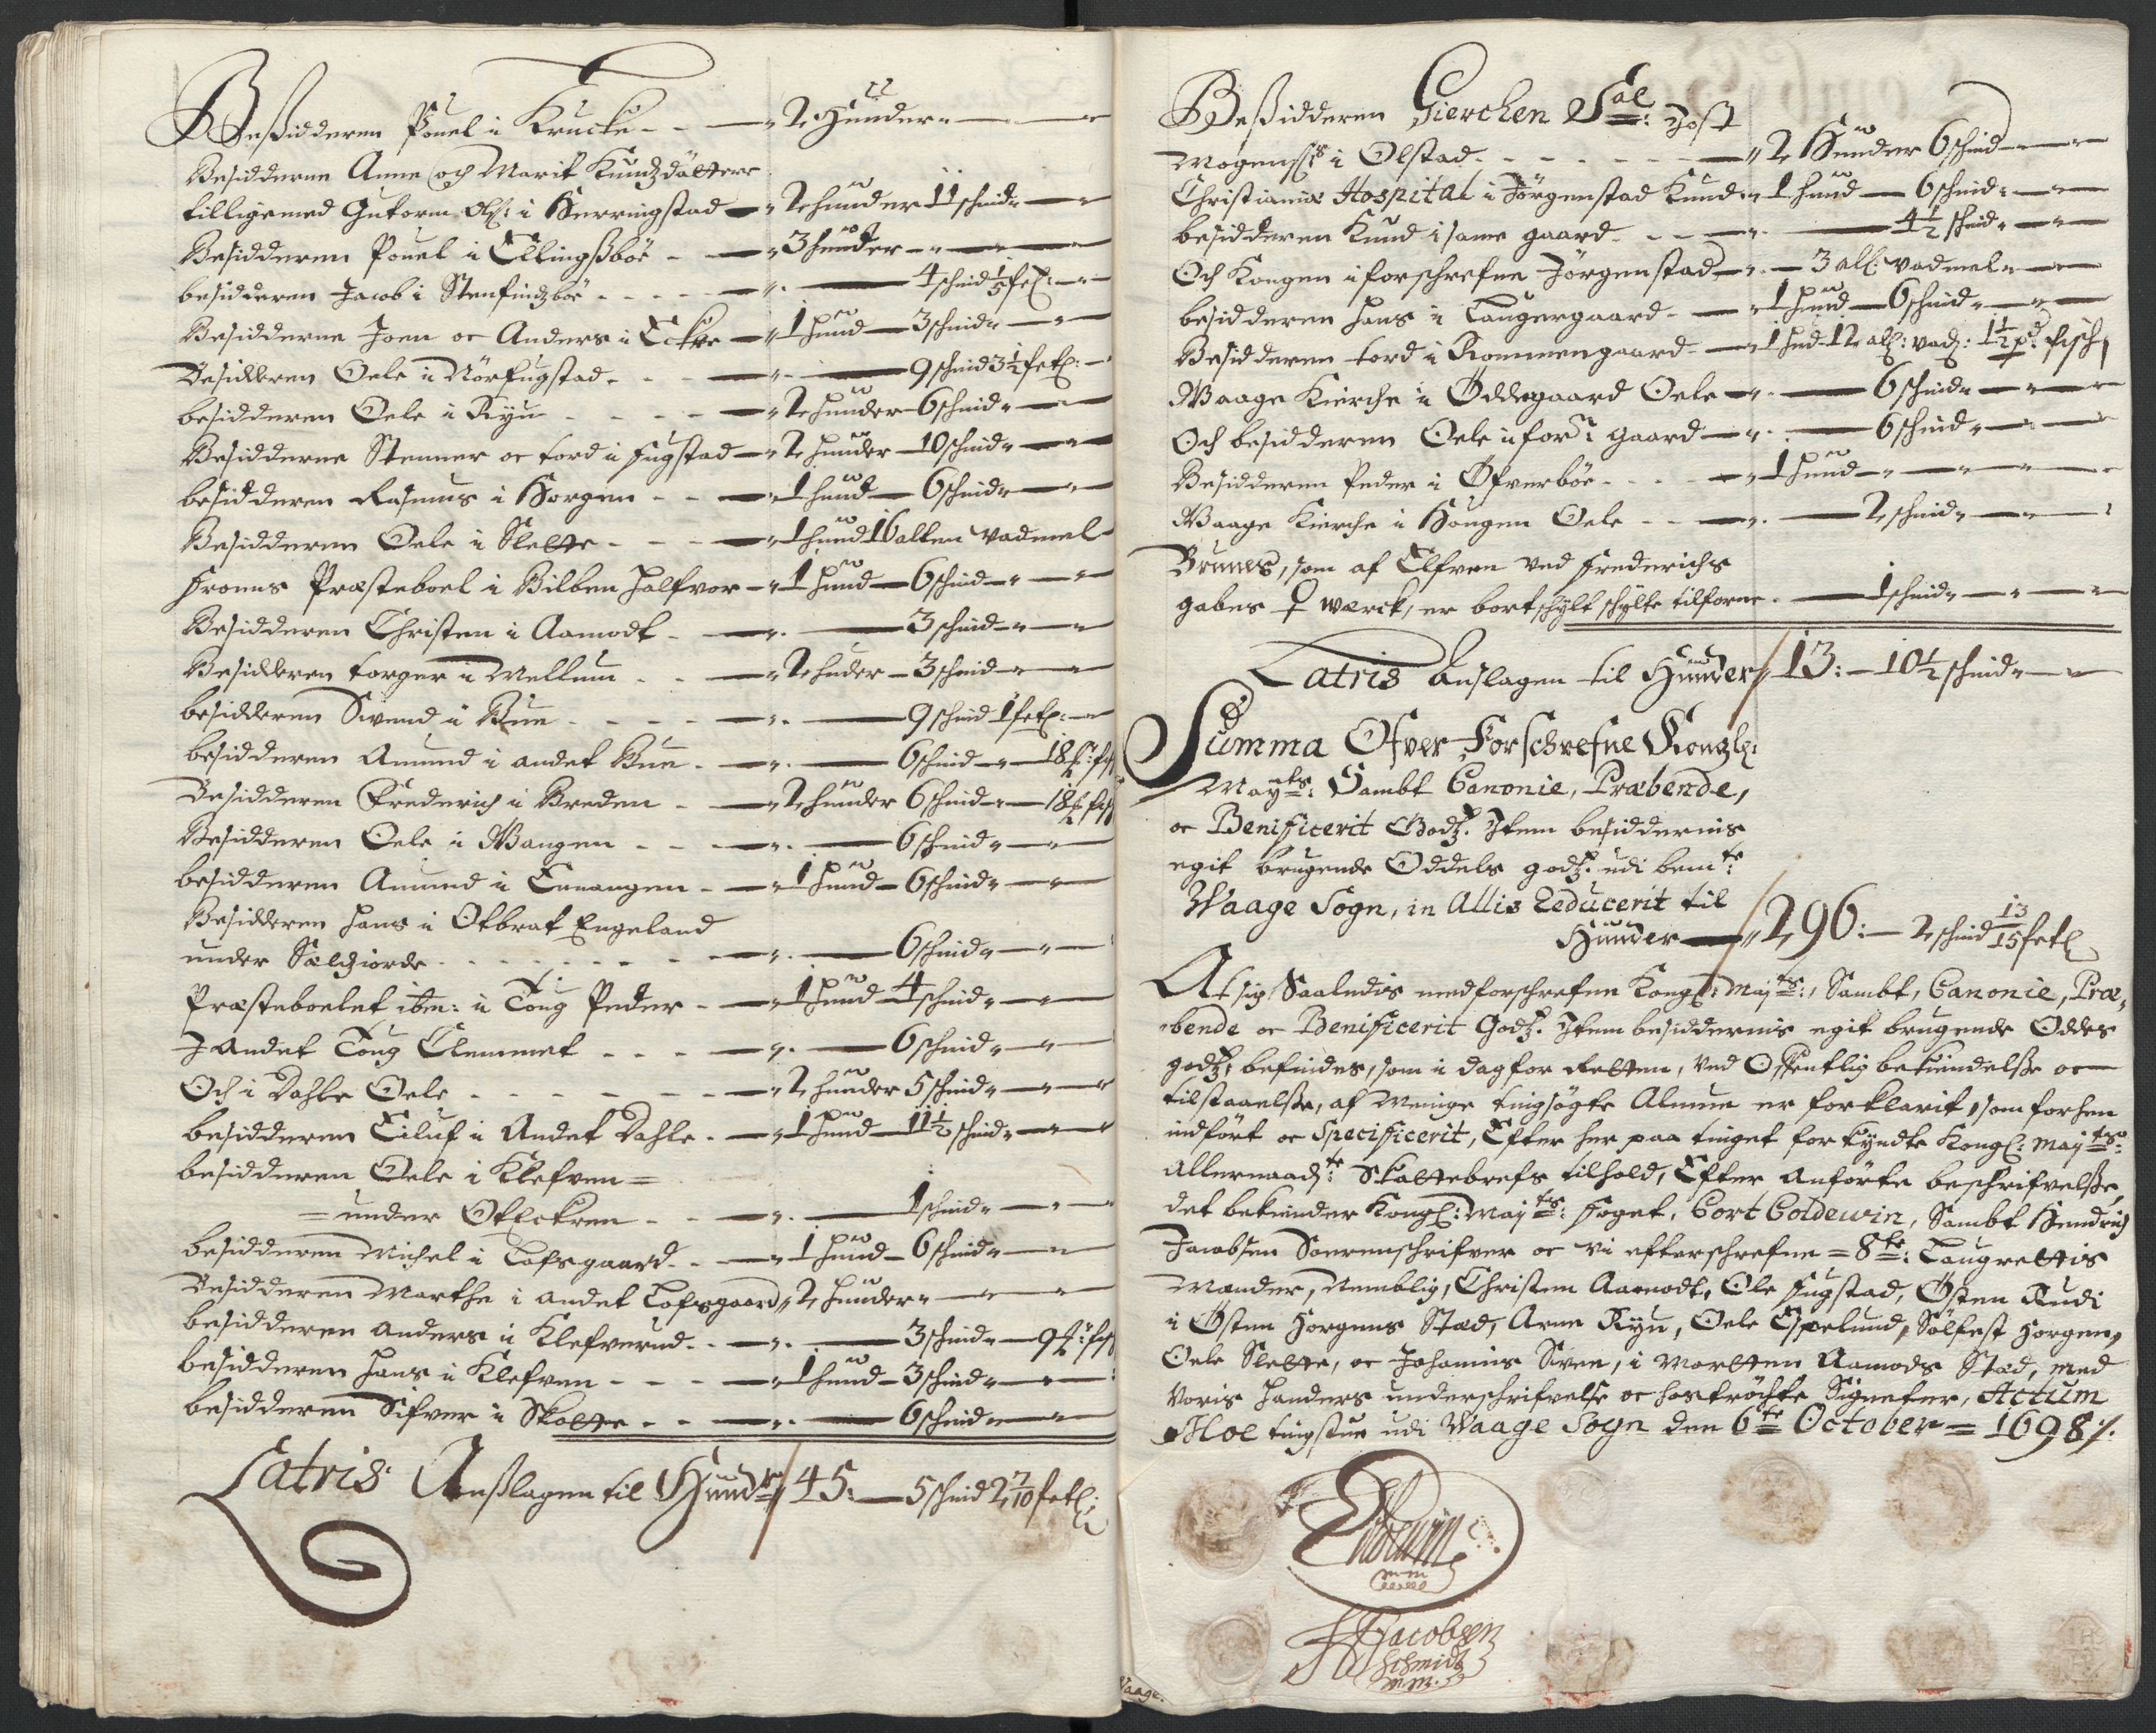 Beßidderen Pouel i Krucke - - — " 2 Hunder " —
Besidderne Anne och Marit Knudzdåttere
tilligemed Gutorm Ols: i Herringstad — " 2 hunder 11 schind " —
Besidderen Pouel i Ellingsbøe - — " 3 hunder " —
besidderen Jacob i Stenfindzbøe - - - - — " — 4 schind 1/5 fetl: —
Besidderne Joen oc Anders i Eckre — " 1 hund — 3 schind " —
Besidderen Oele i Nörfugstad - - — " — 9 schind 3 1/2 fetl: —
besidderen Oele i Ryen - - - - — " 2 hunder — 6 schind " —
Besidderne Stenner oc tord i fugstad — " 2 hunder — 10 schind " —
besidderen Rasmus i Horgen - - — " 1 hund — 6 schind " —
Besidderen Oele i Slette - - - — " 1 hund 16 allen vadmel
Froens Præsteboel i Bilben Halfvor — " 1 hund — 6 schind " —
Besidderen Christen i Aamodt - — " — 3 schind " —
Besidderen torger i Mellum - - — " 2 huder — 3 schind " —
besidderen Swend i Bue - - - - — " — 9 schind 1 fetl: —
besidderen Amund i andet Bue - — " — 6 schind " — 18
Besidderen Frederich i Breden - — " 2 hunder 6 schind " — 18
Besidderen Oele i Wangen - - — " — 6 schind " —
besidderen Amund i - — " 1 hund — 6 schind " —
Besidderen Hans i Otbrat Engeland
under Selchiorde - - - - - — " — 6 schind " —
Præsteboelet ibm: i Toug Peder - — " 1 hund — 4 schind " —
I Andet Toug Clemmet - - - — " — 6 schind " —
Och i Dahle Oele - - - - - — " 2 hunder 5 schind " —
besidderen Eiluf i Andet Dahle - — " 1 hund — 11 1/2 schind " —
besidderen Oele i Klefven =
= under - - — " — 1 schind " —
besidderen Michel i Lofsgaard - - — " 1 hund — 6 schind " —
Besidderen Marthe i andet Lofsgaard " 2 hunder " —
besidderen Anders i Klefverud - - — " — 3 schind " — 9
besidderen Hans i Klefven - - - — " 1 hund — 3 schind " —
besidderen Sifver i Skotte - - — " — 6 schind " —
Latris Anßlagen til Hunder 45: — 5 schind 2 7/10 fetl:
Beßidderen Gierchen Sal: Jost
Mogenss: i Olstad - - - - — " 2 Hunder 6 schind —
Christianiæ Hospital i Jörgenstad Knud " 1 hund — 6 schind " —
besidderen Knud i same gaard - - — " — 4 1/2 schind " —
Och Kongen i forschrefne Jörgenstad — " — 3 all: vadmel " —
besidderen Hans i Laugergaard - — " 1 hund — 6 schind " —
Besidderen tord i Rommengaard - — " 1 hud 12 all: vad: 1 1/2 pd: fisch
Waage Kierche i Öddegaard Oele — " — 6 schind " —
Och besidderen Oele i forn: gaard — " — 6 schind " —
Besidderen Peder i Öfverböe - - - — " 1 hund " —
Waage Kierche i Hougen Oele - - — " — 2 schind " —
Brunes, som af Elfven ved Frederichs
gabes ♀ wærck, er bortschylt schylte tilforne - — 1 schind " —
Latris Anslagen til Hunder " 13: — 10 1/2 schind " —
Summa Ofver Forschrefne Kongl:
Mayts: Sambt Canonie, Præbende,
oc Benificerit Godz. Item besiddernis
egit brugende Oddels godz. udi bemte:
Waage Sogn, in Allis Reducerit til
Hunder — " 296: — 2 schind 13/15 fetl
At sig Saaledis med forschrefne Kongl: Mayts:, Sambt, Canonie, Præ,
bende oc Benificerit Godz. Item besiddernis egit brugende Oddels
godz, befindes, som i dag for Retten, ved Offentlig bekiendelsse oc
tilstaaelsse, af Menige tingsögte Almue er forklarit, som forhen
indfört oc Specificerit, Efter her paa tinget forkyndte Kongl: Mayts:
Allernaadte: Skattebrefs tilhold, Efter Anförte beschrifvelsse,
det bekiender Kongl: Mayts: foget, Cort Coldewin, Sambt Hendrich
Jacobsen Sorenschrifver oc vi efterschrefne = 8te: Laugrettis
Mænder, Nemblig, Christen Aamodt, Ole fugstad, Östen Rudi
i Östen Horgens Stæd, Arne Ryen, Oele Espelund, Sölfest Horgen,
Oele Slette, oc Johannis Sven, i Morten Aamods Stæd, med
voris Hænders underschrifvelse oc hoströchte Signeter, Actum
Hole tingstue udi Waage Sogn den 6te October = 1698 ./.
Coldewin
mm
HJacobsen
Schmidt
m.m.
Waage.